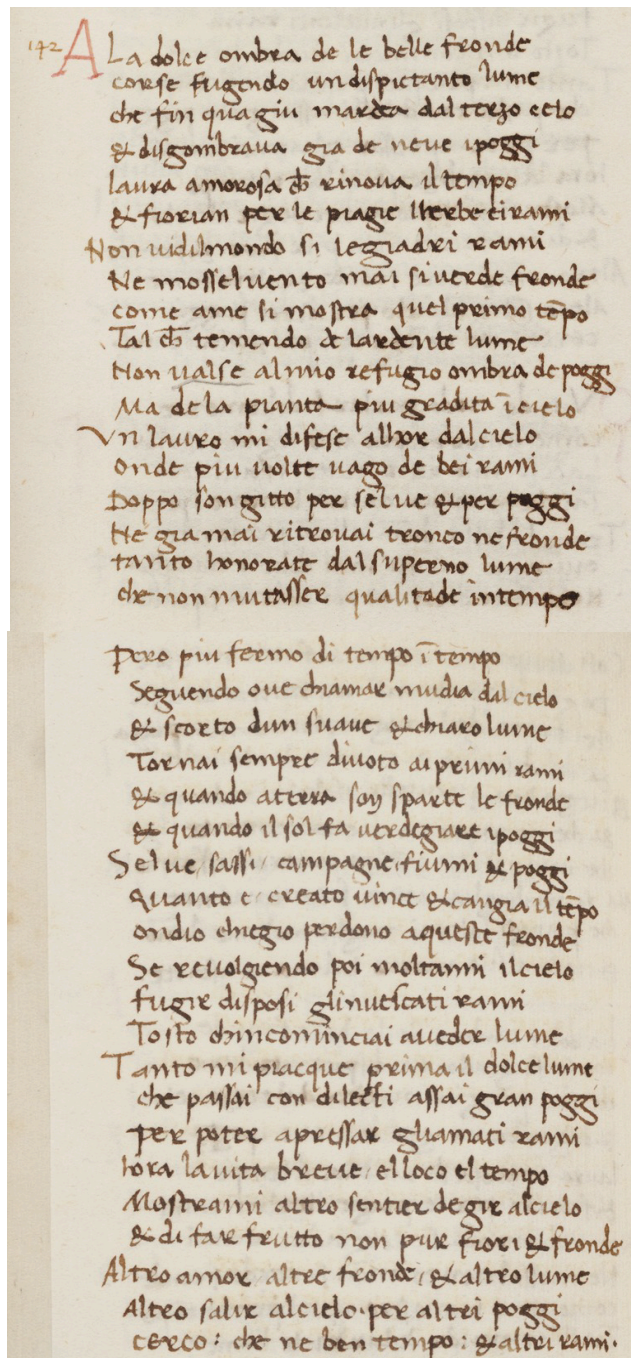 142 A La dolce ombra de le belle fronde
corse fugendo un dispietanto lume
che fin qua giu mardea dal terzo celo
& disgombrava gia de neve i poggi
laura amorosa ch rinova il tempo
& fiorian per le piagie lherbe ei rami
Non vidil mondo si legiadri rami
Ne mosse l vento mai si verde fronde
come ame si mostra quel primo tēpo
Tal ch temendo de lardente lume
Non valse al mio refugio ombra de poggi
Ma de la pianta piu gradita ī cielo
Un lauro mi difese alhor dal cielo
onde piu volte vago de bei rami
Doppo son gitto per selve & per poggi
Ne gia mai ritrovai tronco ne fronde
tanto honorate dal superno lume
che non mutasser qualitade in tempo
Pero piu fermo di tempo ī tempo
Seguendo ove chiamar mudia dal cielo
& scorto dun suave & chiaro lume
Tornai sempre divoto ai primi rami
& quando a terra son sparte le fronde
& quando il sol fa verdegiare i poggi
Selve / sassi / campagne / fiumi & poggi
Quanto e creato vince & cangia il tēpo
ondio chiegio perdono a queste fronde
Se revolgiendo poi moltanni il cielo
fugir disposi gli invescati rami
Tosto chincominciai a veder lume
Tanto mi piacque prima il dolce lume
che passai con dilecti assai gran poggi
per poter apressar gli amati rami
hora la vita breve / el loco el tempo
Mostrami altro sentier de gir al cielo
& di far frutto non pur fiori & fronde
Altro amor altre fronde / & altro lume
Altro salir al cielo · per altri poggi
cerco : che ne ben tempo : & altri rami ·